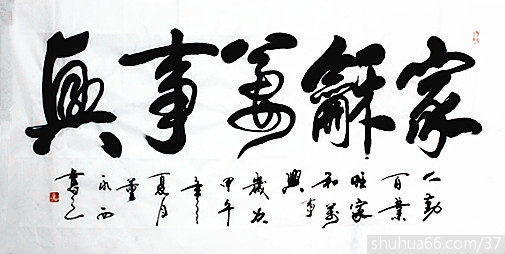 家龢萬事興
人勤
百業
旺家
和萬事
興
歲次
甲午
年
夏月
董
永西
書之
shuhua66.com/37